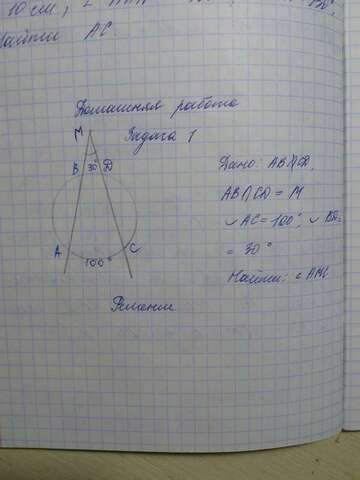 10 см, ∠
Найти AC.
Домашняя работа
Задача 1
M
B 30° D
A C
100°
Дано: AB ∦ CD
AB ∩ CD = M
◡ AC = 100°, ◡ BD=
= 30°
Найти: ∠ AMC
Решение